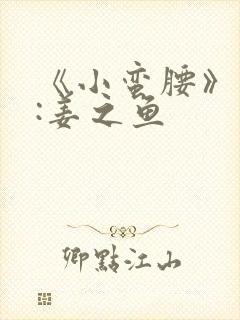 《小蛮腰》
:姜之鱼
卿點江山